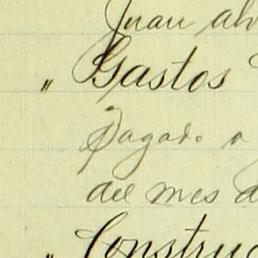 Juan
" Gastos
Pagado a
del mes d
" Construc